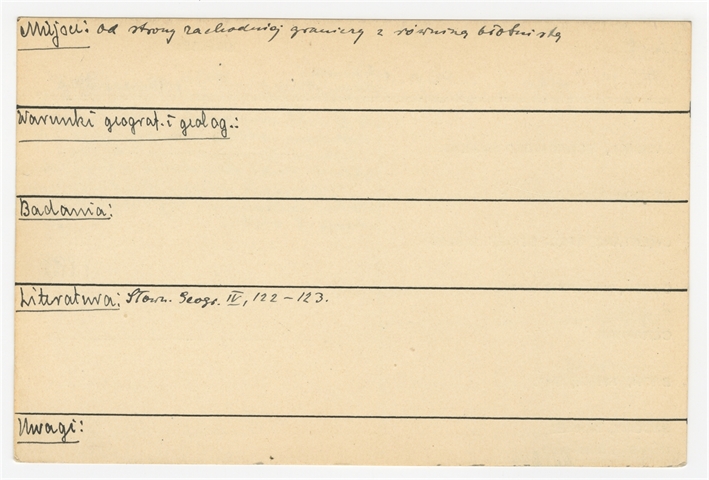 Miejsc: od strony zachodniej graniczy z równiną błotnistą
Warunki geograf. i geolog.:
Badania:
Literatura: Słown. Geogr. IV, 122-123.
Uwagi: